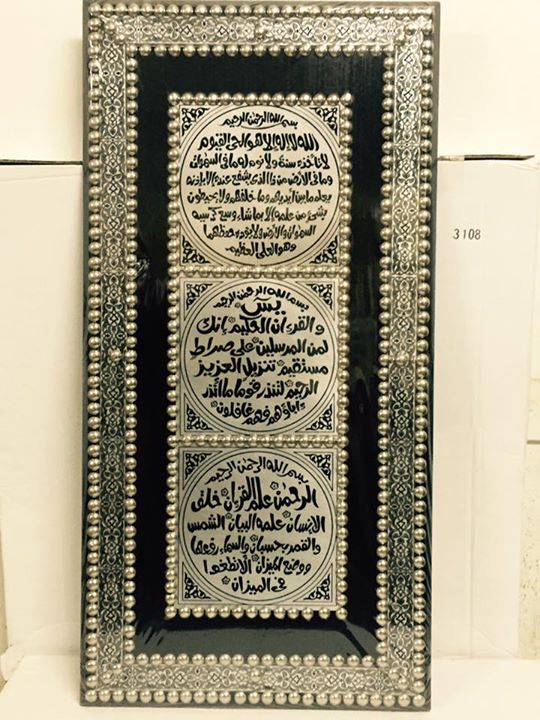 بسم الله الرحمن الرحيم
الله لا اله الا هو الحي القيوم
لا تأخذه سنة ولا نوم له ما في السموات
وما في الأرض من ذا الذي يشفع عنده الا باذنه
يعلم ما بين أيديهم وما خلفهم ولا يحيطون
بشئ من علمه الا بما شاء وسع كرسيه
السموات والأرض ولا يؤده حفظهما
وهو العلي العظيم
بسم الله الرحمن الرحيم
يس
والقرءان الحكيم إنك
لمن المرسلين على صراط
مستقيم تنزيل العزيز
الرحيم لتنذر قوما ما أنذر
ءاباؤهم فهم غافلون
بسم الله الرحمن الرحيم
الرحمن علم القرءان خلق
الإنسان علمه البيان الشمس
والقمر بحسبان والسماء رفعها
ووضع الميزان ألا تطغوا
في الميزان
3108